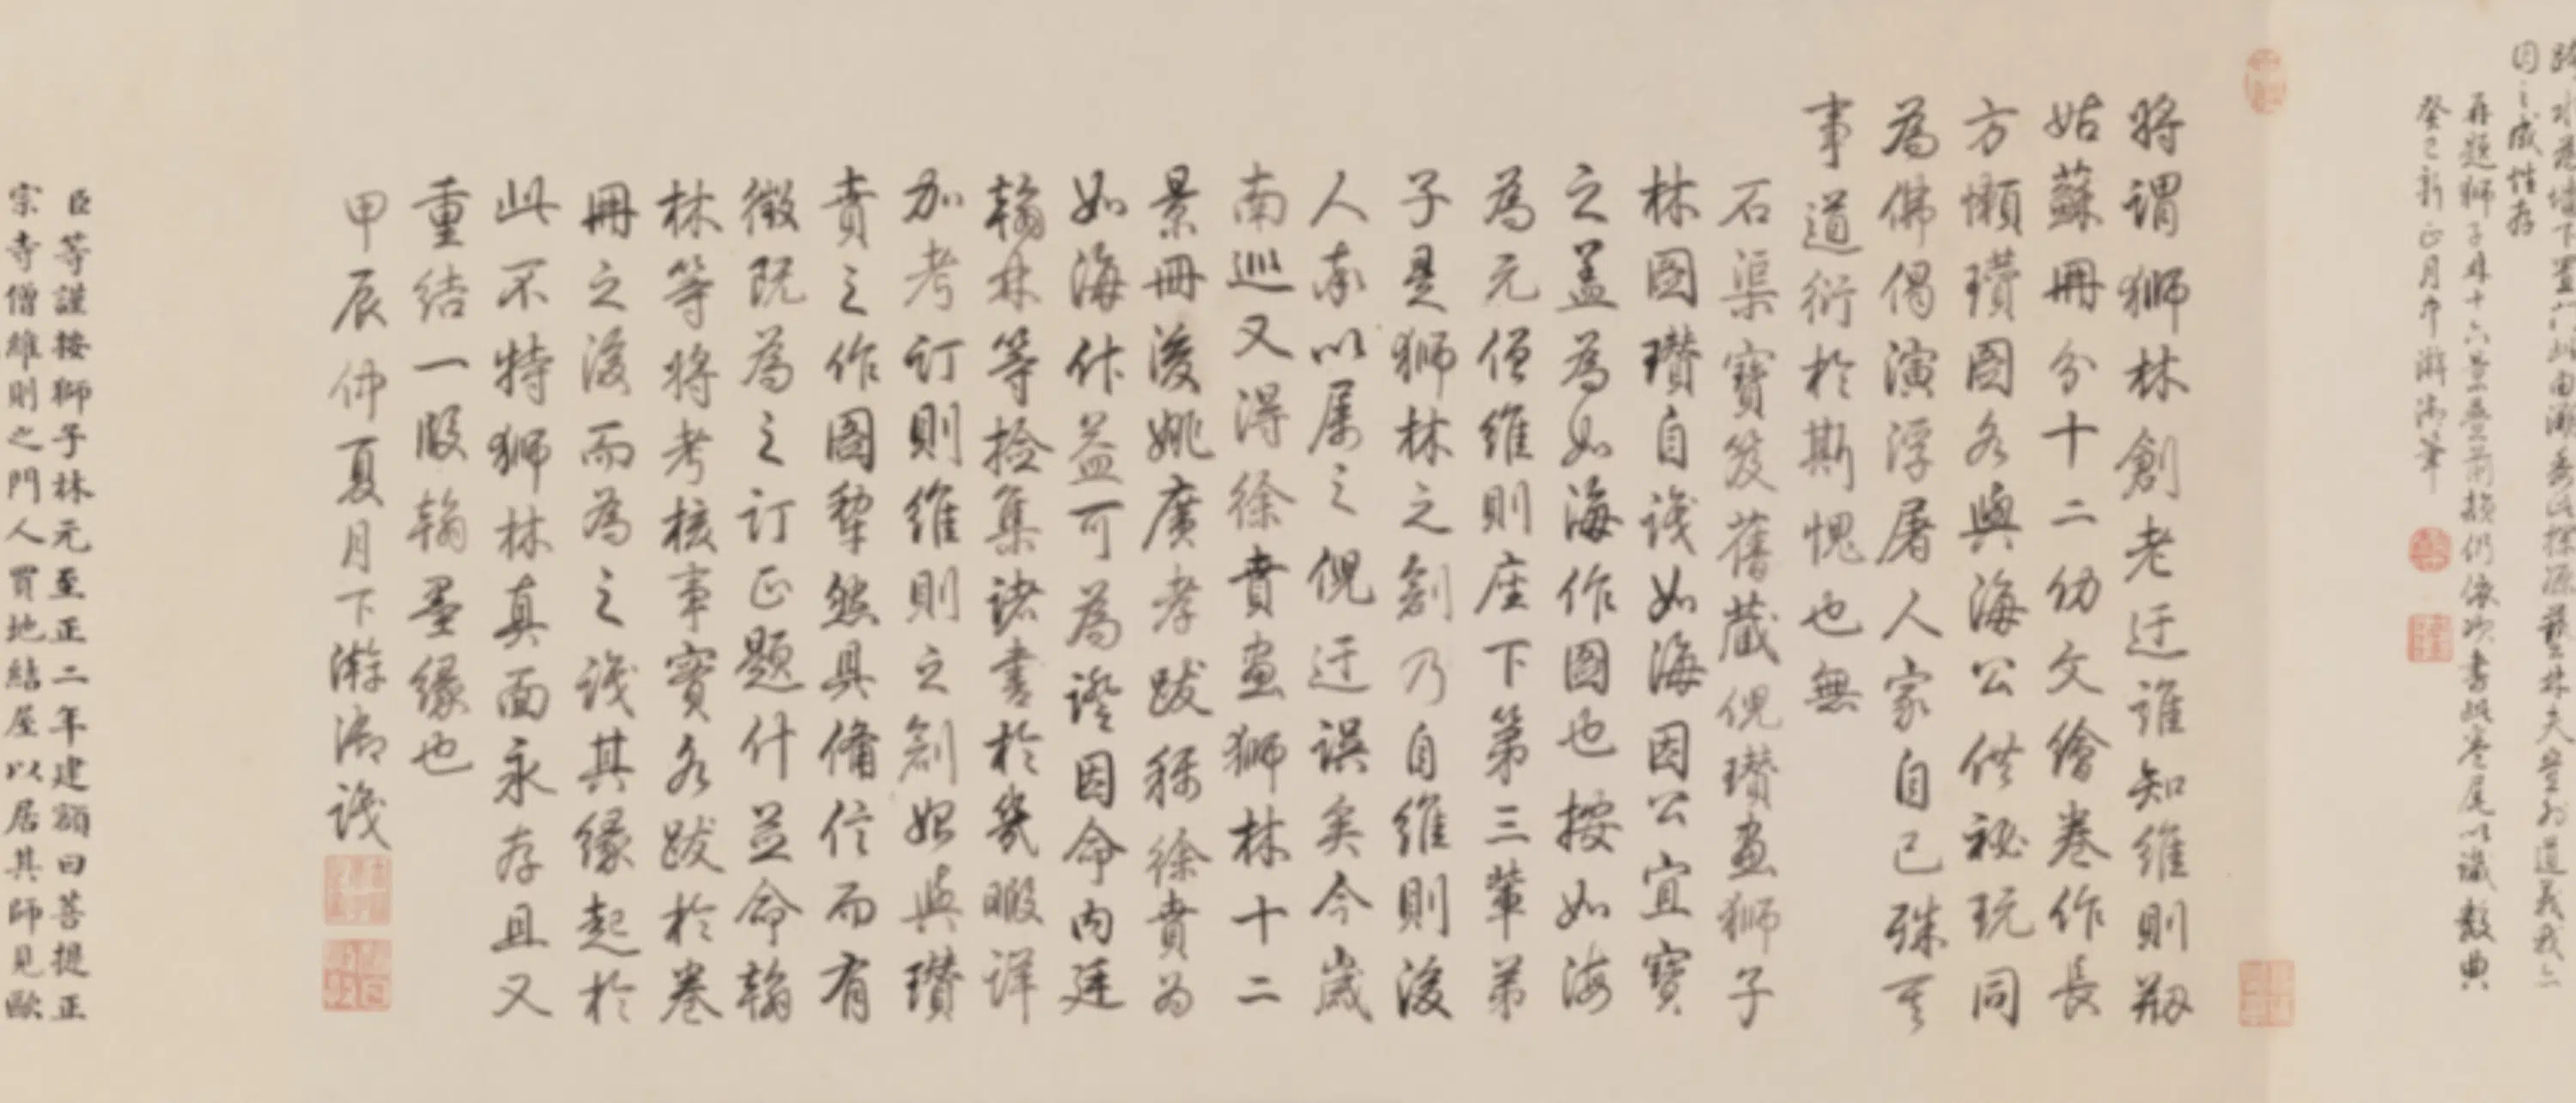 因之成性存
再題獅子林十六景疊前韻仍依次書此卷尾以識數典
癸巳新正月中澣御筆
將謂獅林創老迂誰知維則剏
姑蘇冊分十二幼文繪卷作長
方懶瓚圖各與海公供祕玩同
為佛偈演浮屠人家自己殊可
事道衍於斯愧也無
石渠寶笈舊藏倪瓚畫獅子
林圖瓚自識如海因公宜寶
之蓋為如海作圖也按如海
為元僧維則座下第三輩弟
子是獅林之創乃自維則後
人率以屬之倪迂誤矣今歲
南巡又得徐賁畫獅林十二
景冊後姚廣孝跋稱徐賁為
如海作益可為證因命內廷
翰林等撿集諸書於幾暇詳
加考訂則維則之創始與瓚
賁之作圖犂然具備信而有
徵既為之訂正題什並命翰
林等將考核事實各跋於卷
冊之後而為之識其緣起於
此不特獅林真面永存且又
重結一段翰墨緣也
甲辰仲夏月下澣御識
臣等謹按獅子林元至正二年建額曰菩提正
宗寺僧維則之門人買地結屋以居其師見歐